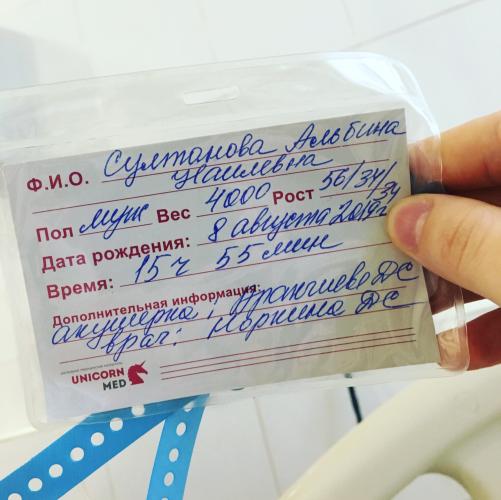 Ф.И.О. Султанова Альбина
Наилевна
Пол муж Вес 4000 Рост 56/34/34
Дата рождения: 8 августа 2019г
Время: 15ч 55 мин
Дополнительная информация:
акушерка: ДС
врач: Норкина ДС
UNICORN
MED